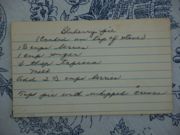 Blueberry pie
(Cooked on top of stove)
1 1/2 cups berries
1 cup sugar
3 tbsp tapioca
Add 2 1/2 cups berries
Top pie with whipped cream